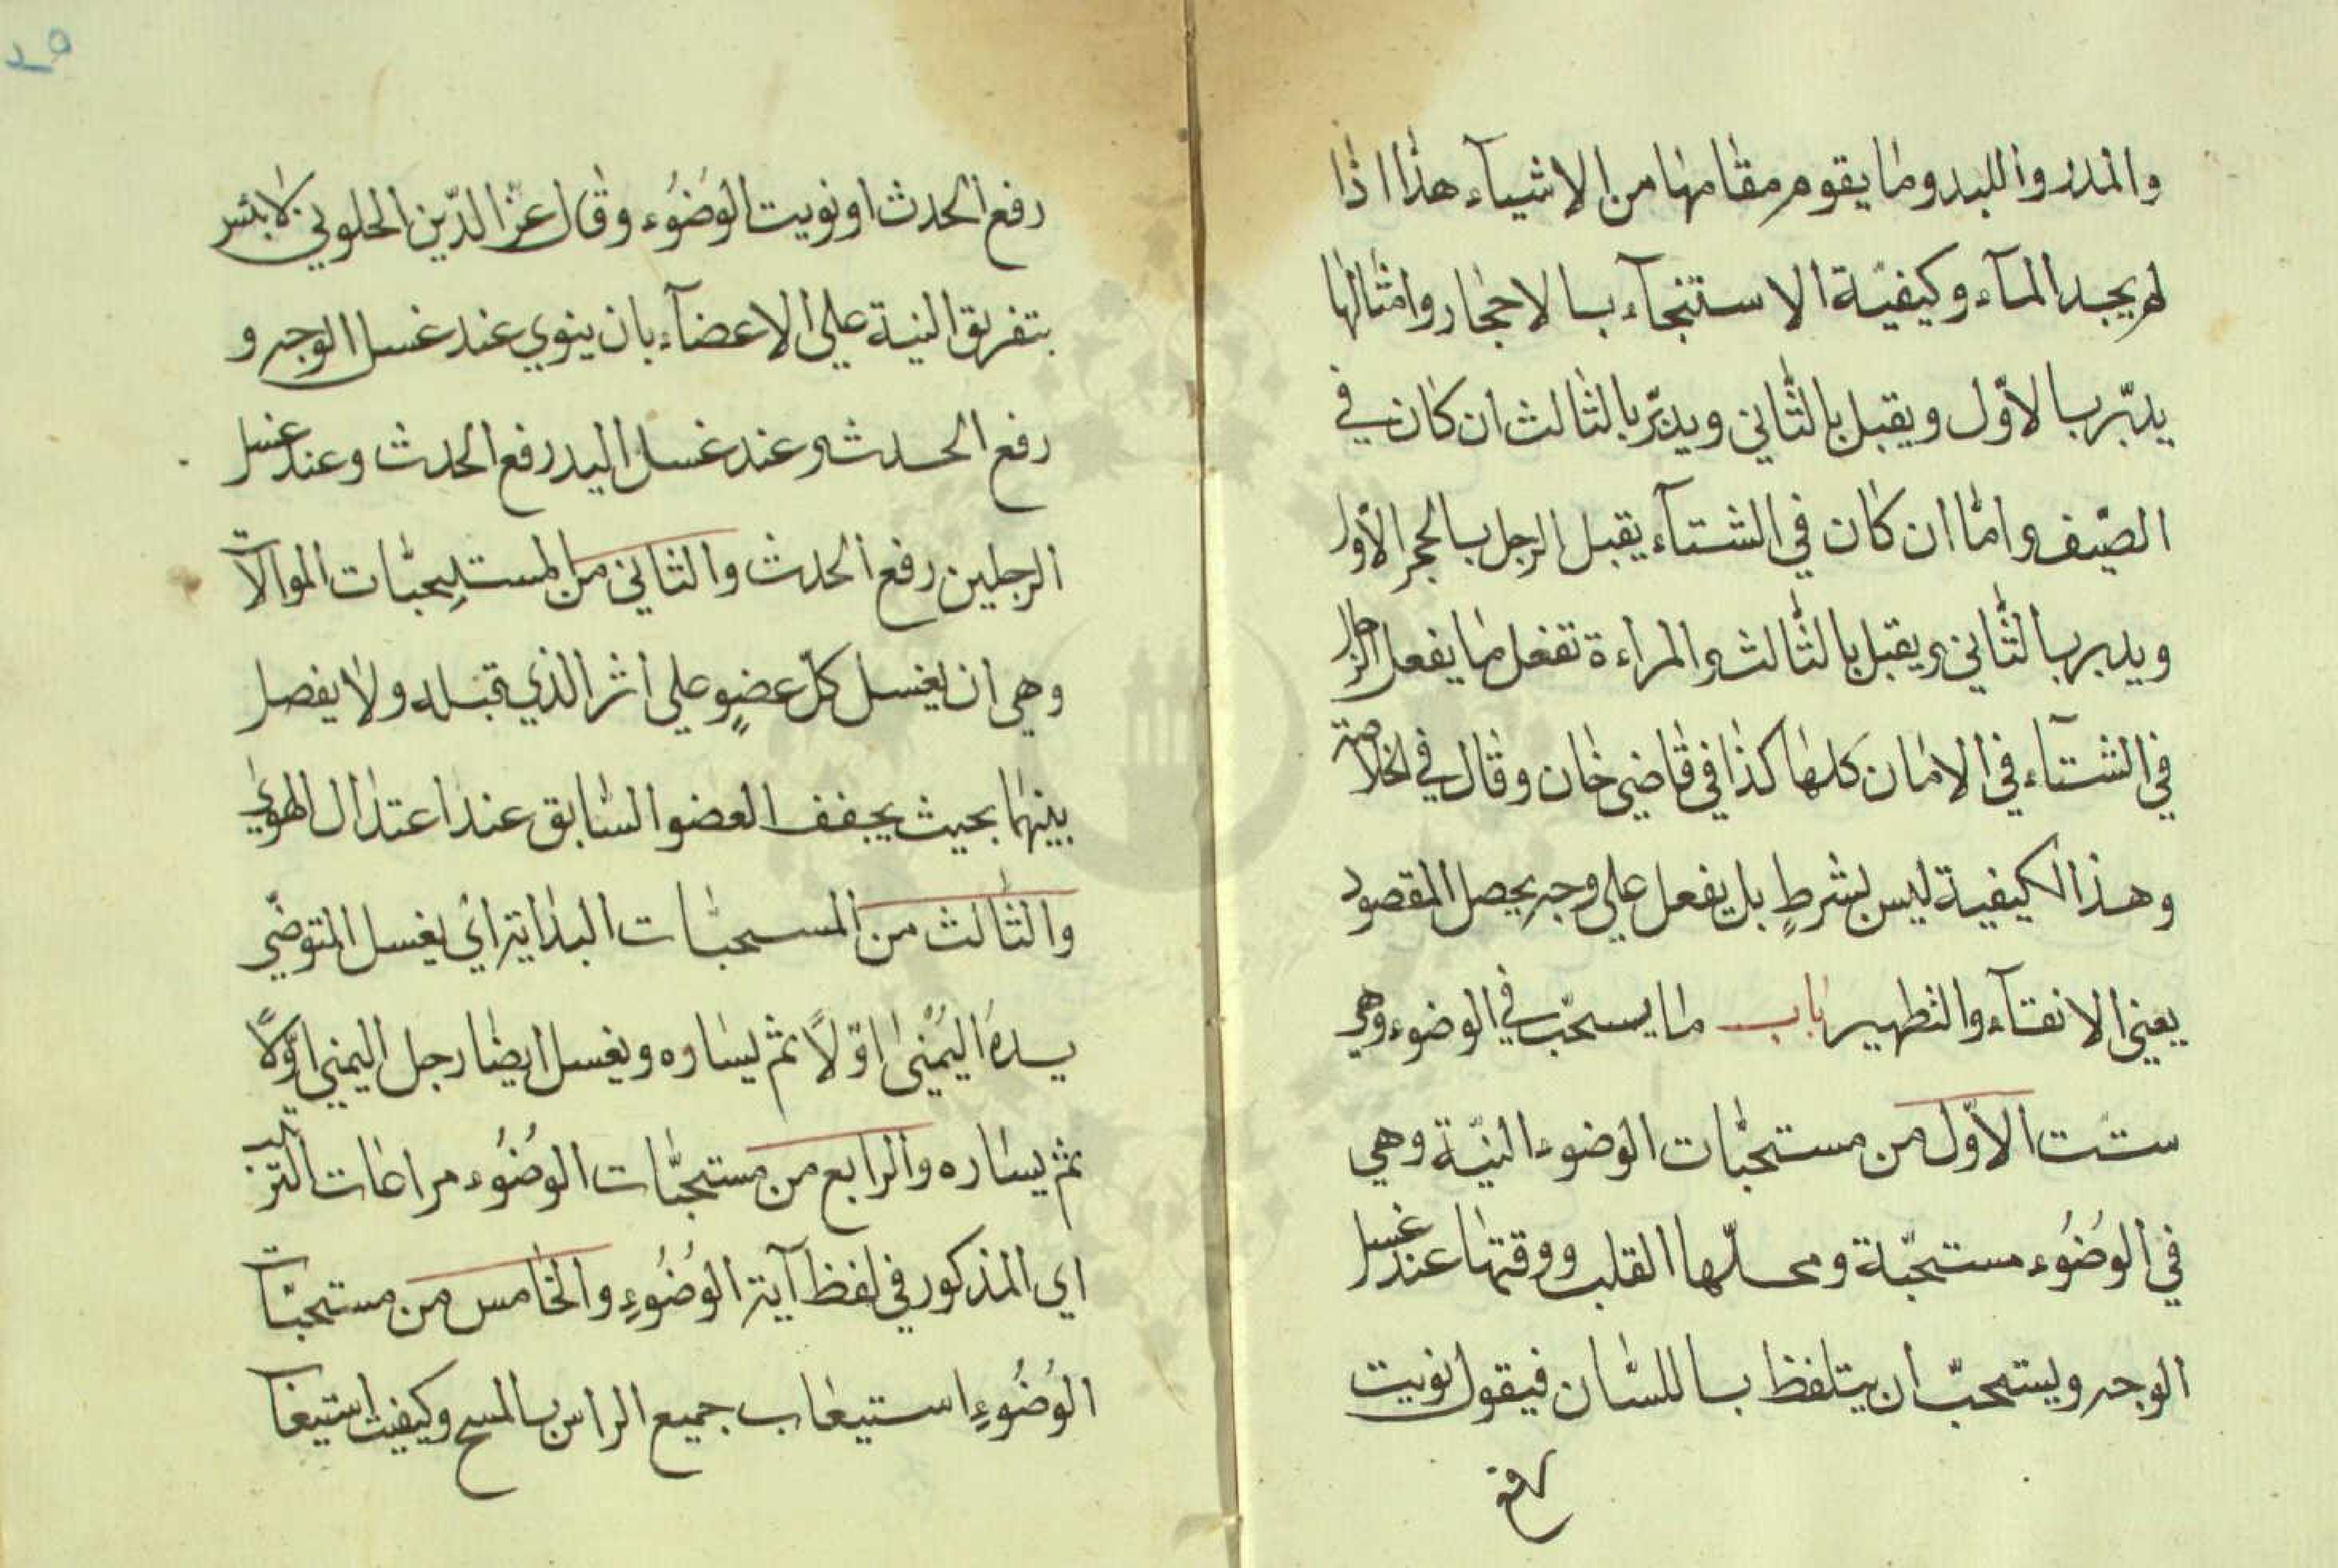 والمدر واللبد وما يقوم مقامها من الاشيآء هذا اذا
لم يجد المآء وكيفيّة الاستنجآء بالاحجار وامثالها
يدبّر بالاوّل ويقبل بالثّاني ويدبّر بالثالث ان كان في
الصّيف وامّا ان كان في الشتآء يقبل الرجل بالحجر الاوّل
ويدبر بالثّاني ويقبل بالثّالث والمراءة تفعل ما يفعل الرجل
في الشتآء في الامان كلها كذا في قاضي خان وقال في الخلاصة
وهذا الكيفية ليس بشرطٍ بل يفعل على وجه يحصل المقصود
يعني الانقآء والتطهير باب ما يستحبّ في الوضوء وهي
ستّت الاوّل من مستحبّات الوضوء النيّة وهي
في الوُضُوء مستحبّة ومحلّها القلب ووقتها عند غسل
الوجه ويستحبّ ان يتلفظ باللسّان فيقول نويت
رفع
رفع الحدث او نويت الوُضُوء وقال عزّ الدّين الحلوني لا بئس
بتفريق النية على الاعضآء بان ينوي عند غسل الوجه و
رفع الحدث وعند غسل اليد رفع الحدث وعند غسل
الرجلين رفع الحدث والثاني من المستحبّات الموالآت
وهي ان يغسل كلّ عضوٍ على اثر الذي قبله ولا يفصل
بينهما بحيث يجفف العضو السّابق عند اعتدال الهوي
والثّالث من المسحبّات البداية اي يغسل المتوضّي
يده اليُمْنى اوّلًا ثم يساره ويغسل ايضا رجل اليمني اوّلًا
ثم يساره والرابع من مستحبّات الوُضُوء مراعات الترتيب
اي المذكور في لفظ آية الوُضُوءِ والخامس من مستحبّات
الوُضُوءِ استيعاب جميع الراس بالمسح وكيفيت استيعا